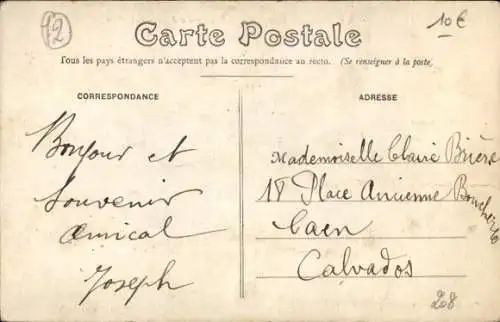 72
10€
Carte Postale
Tous les pays étrangers n'acceptent pas la correspondance au recto. (Se renseigner à la poste)
CORRESPONDANCE
ADRESSE
Bonjour et
Souvenir
Amical
Joseph
Mademoiselle Claire Brière
18 Place Ancienne Boucherie
Caen
Calvados
208